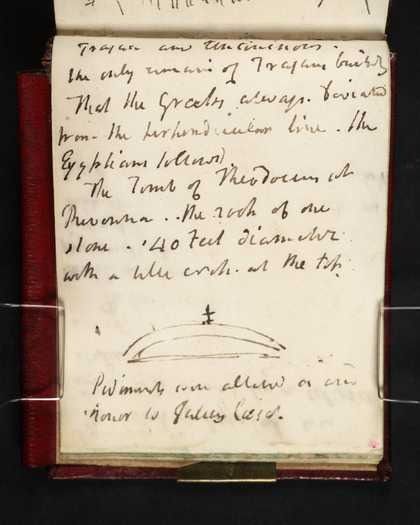 Trajan and
the only remains of Trajans
That the Greeks always Deviated
from the perpendicular line. the
Egyptians followd
The Tomb of Theodocus at
Ravenna.. the roof of one
stone. 40 Feet diameter
with a little at the top
Pediments were allowd as an
Honor to Julius Cesar.